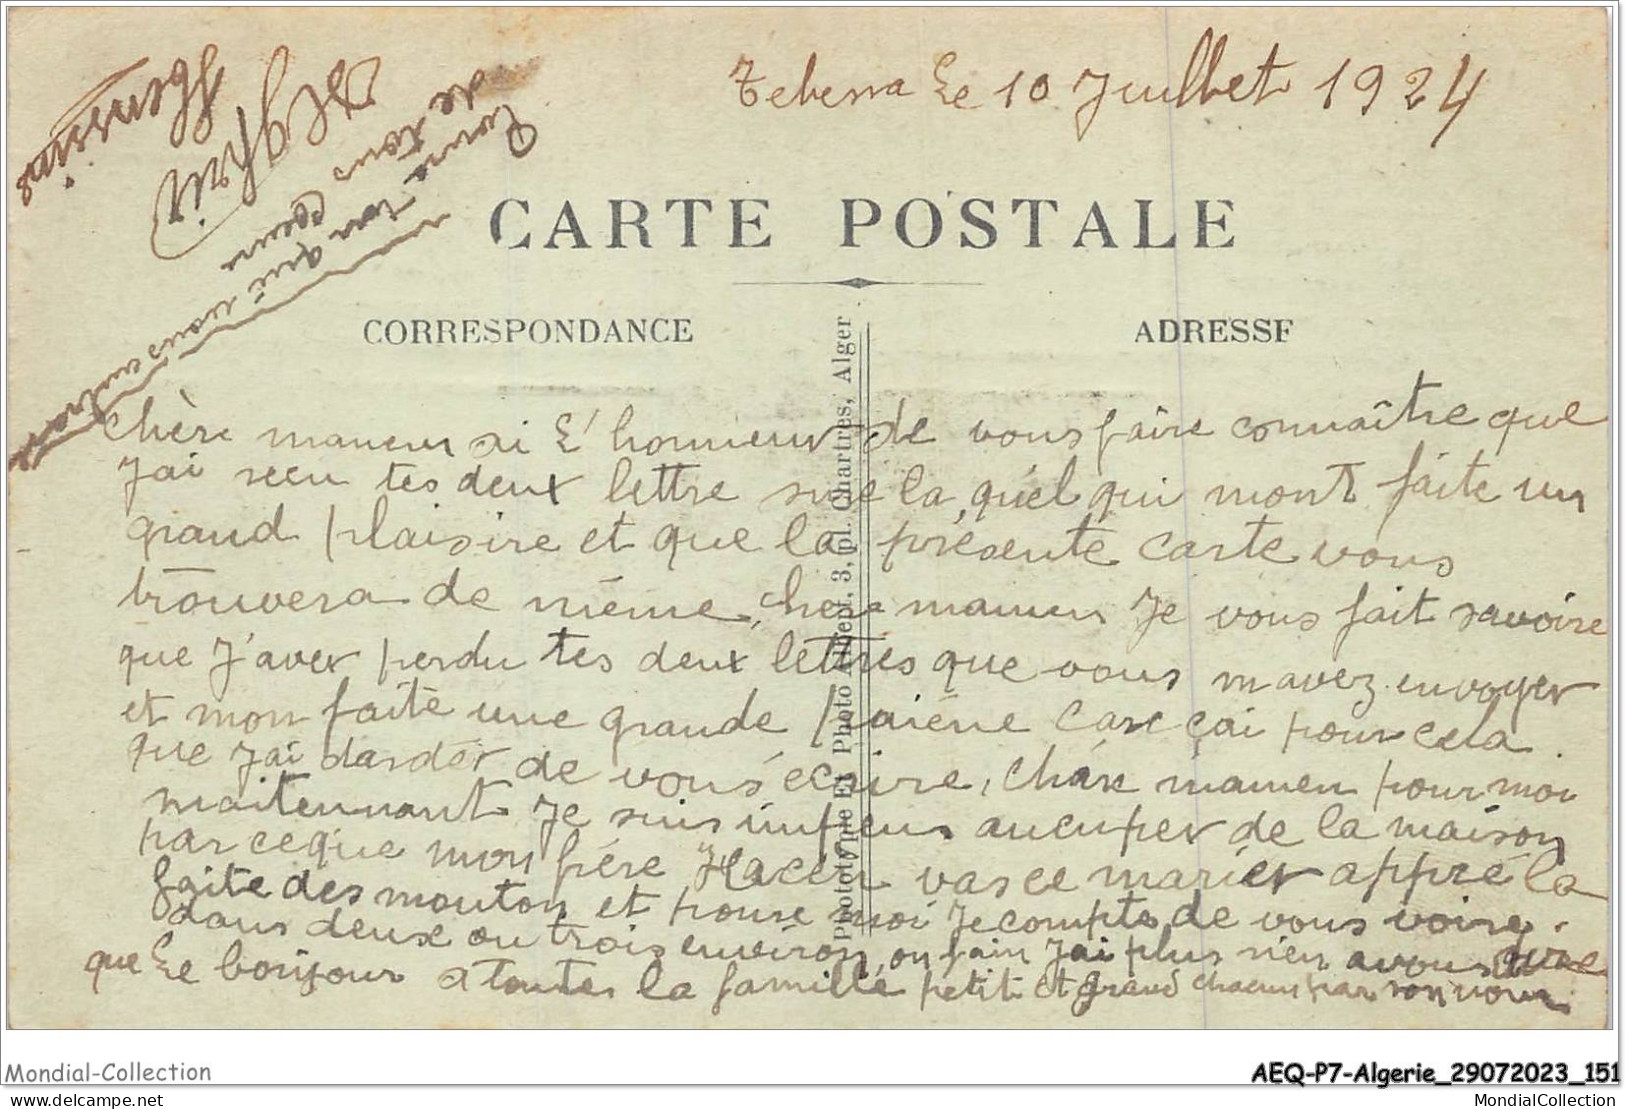 Tebessa Le 10 Juillet 1924
CARTE POSTALE
CORRESPONDANCE
ADRESSE
Phototypie Et Photo Albert, 3, pl. Chartres, Alger
chère mamen ai L'honneur de vous faire connaître que
J'ai recu tes deux lettre sure la quél qui mont faite un
grand plaisire et que la présente carte vous
trouvera de même, cher mamen Je vous fait savoire
que J'aver perdu tes deux lettres que vous mavez envoyer
et mon faite une grande paiéne car çai pour cela
que J'ai darder de vous écrire, Chère mamen pour moi
maitennant Je suis impeu aucuper de la maison
par ceque mon frére Hacen vas ce marier appré la
faite des mouton et poure moi Je compte de vous voire
dans deux ou trois environ, on fain J'ai plus rien a vous dire
que Le bonjour a toutes la famille petit et grand chacun par son nom
de tous
ton
qui vous
Mondial-Collection
AEQ-P7-Algerie_29072023_151
delcampe.net
MondialCollection